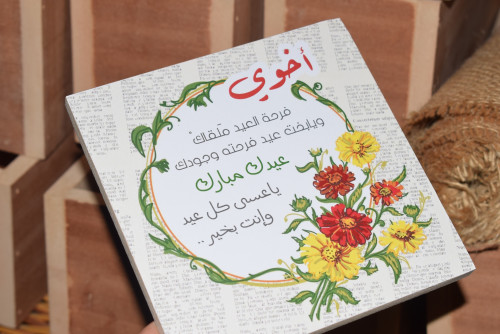 أخوي
فرحة العيد ملقاك
ويابخت عيد فرحته وجودك
عيدك مبارك
ياعسى كل عيد
وإنت بخير ..